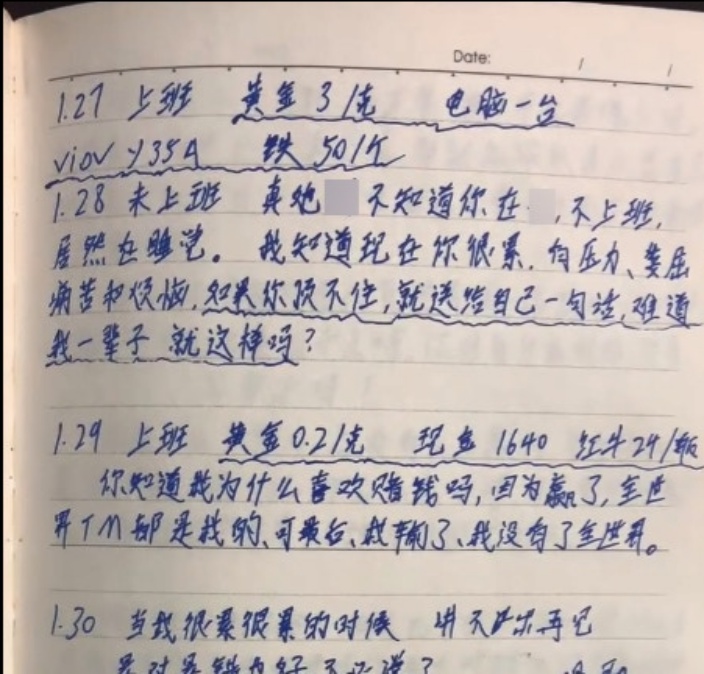 Date: / /
1.27 上班 黄金3/克 电脑一台
viov y35A 铁 50/斤
1.28 未上班 真他 不知道你在 ,不上班,
居然在睡觉。 我知道现在你很累,有压力、委屈
痛苦和烦恼,如果你顶不住,就送给自己一句话,难道
我一辈子 就这样吗?
1.29 上班 黄金0.2/克 现金1640 红牛24/瓶
你知道我为什么喜欢赌钱吗,因为赢了,全世
界TM都是我的、可最后、我输了、我没有了全世界。
1.30 当我很累很累的时候